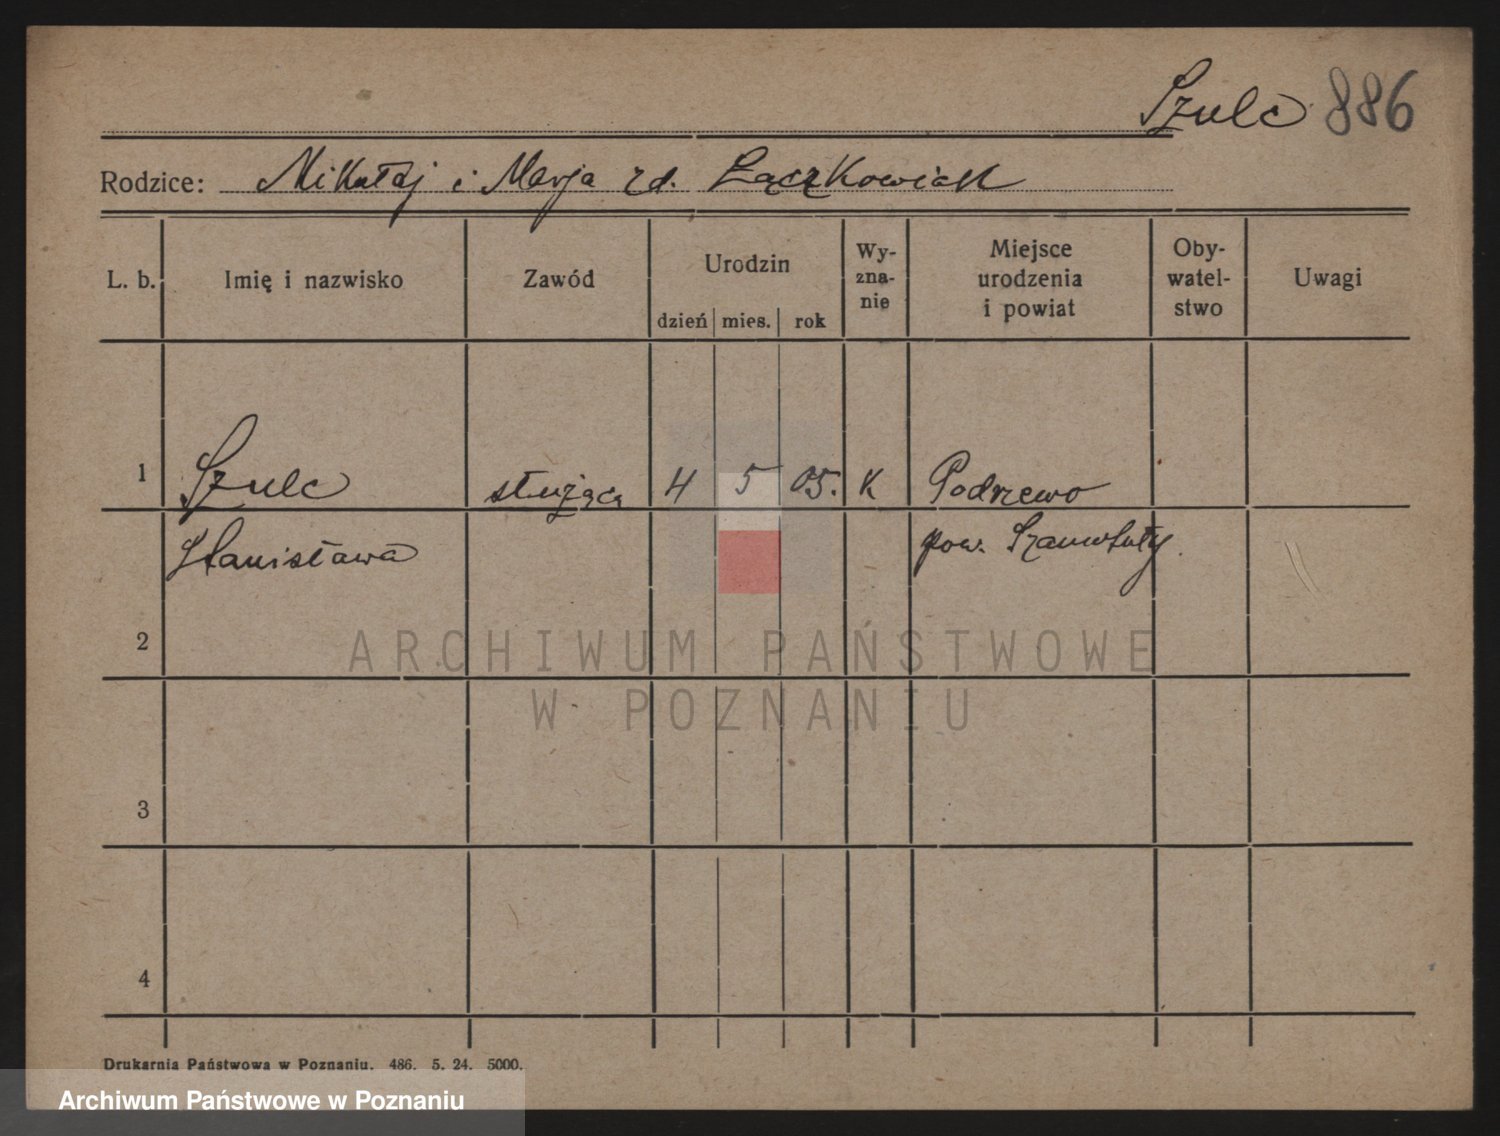 Szulc 886
Rodzice: Mikołaj i Marja zd. Łączkowiak
L. b. Imię i nazwisko Zawód Urodzin dzień mies. rok Wy-zna-nie Miejsce urodzenia i powiat Oby-watel-stwo Uwagi
1 Szulc służąca 4 5 05. K Podrzewo
Stanisława pow. Szamotuły.
2
ARCHIWUM PAŃSTWOWE
W POZNANIU
3
4
Drukarnia Państwowa w Poznaniu. 486. 5. 24. 5000.
Archiwum Państwowe w Poznaniu